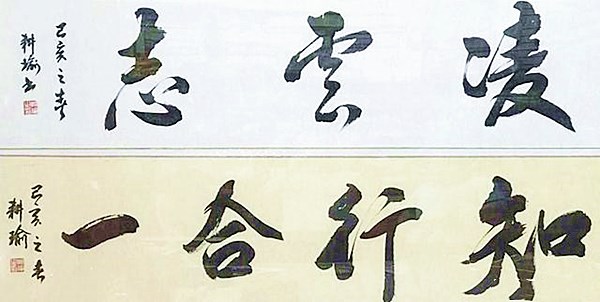 凌雲志
己亥之春
耕瑜书
知行合一
己亥之春
耕瑜